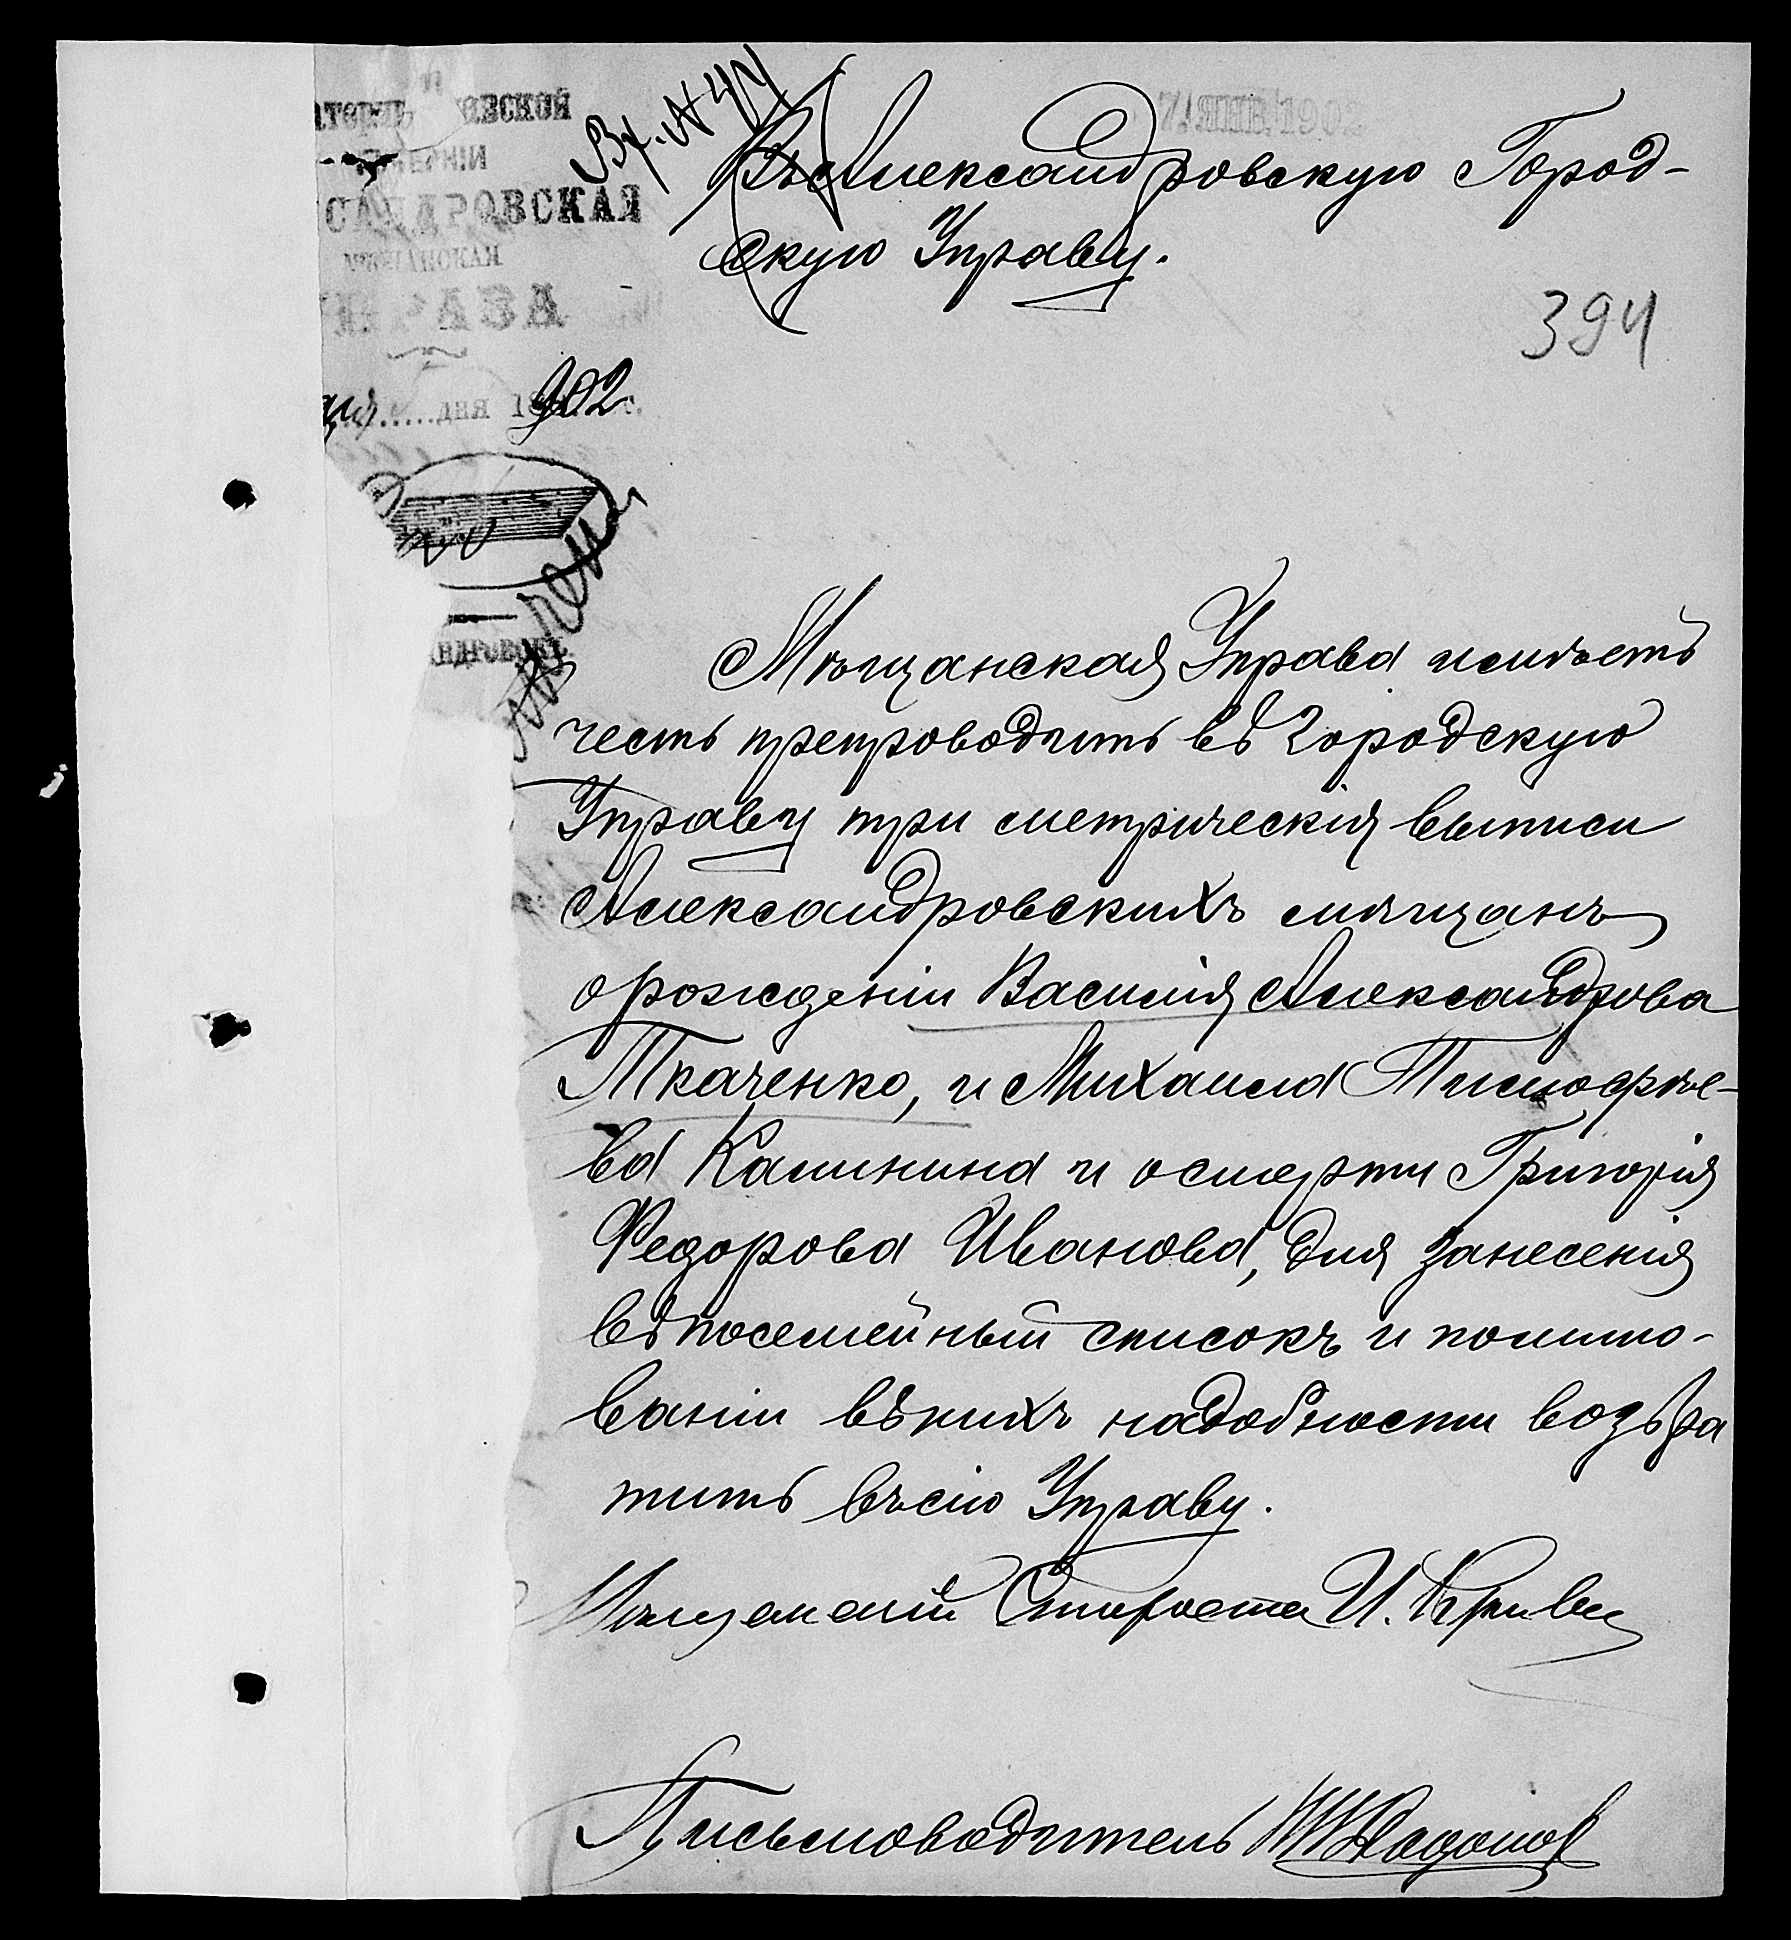 Вх. №
Въ Александровскую Город-
скую Управу.
7. ЯНВ. 1902
394
САНДРОВСКАЯ
МѢЩАНСКАЯ
УПРАВА
дня 1902 г.
Мѣщанская Управа имѣетъ
честь препроводить въ Городскую
Управу три метрическія выписи
Александровскихъ мѣщанъ
о рожденіи Василія Александрова
Ткаченко, и Михаила Тимофѣе-
ва Калинина и о смерти Григорія
Федорова Иванова, для занесенія
въ посемейный списокъ и по мино-
ваніи въ нихъ надобности возвра
тить въ сію Управу.
Мѣщанскій Староста И.
Письмоводитель